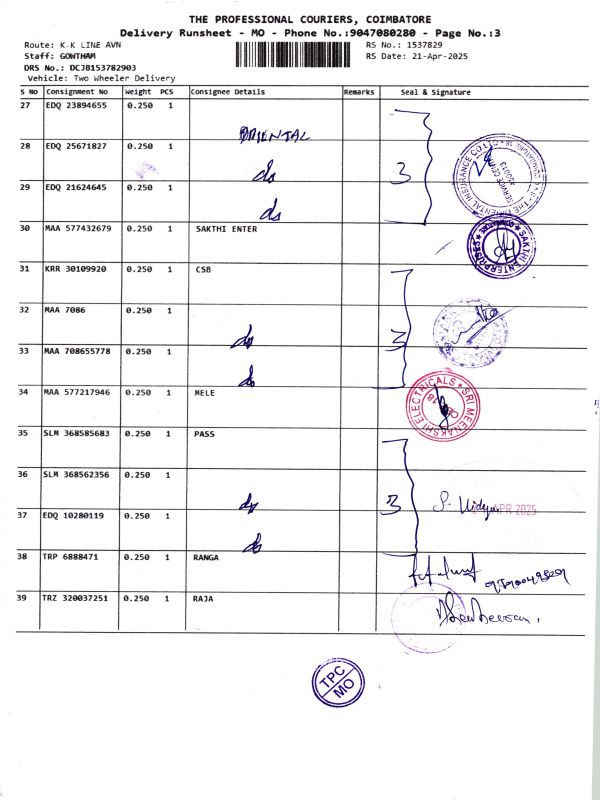 THE PROFESSIONAL COURIERS, COIMBATORE
Delivery Runsheet - MO - Phone No.:9047080280 - Page No.:3
Route: K-K LINE AVN RS No.: 1537829
Staff: GONTHAM RS Date: 21-Apr-2025
DRS No.: DCJB153782903
Vehicle: Two Wheeler Delivery
S No Consignment No Weight PCS Consignee Details Remarks Seal & Signature
27 EDQ 23894655 0.250 1
ORIENTAL
28 EDQ 25671827 0.250 1 do 3
29 EDQ 21624645 0.250 1 do
30 MAA 577432679 0.250 1 SAKTHI ENTER
SAKTHI ENTERPRISES
31 KRR 30109920 0.250 1 CSB
32 MAA 7086 0.250 1 do 3
33 MAA 708655778 0.250 1 do
34 MAA 577217946 0.250 1 MELE
SRI MEENAKSHI ELECTRICALS
35 SLM 368585683 0.250 1 PASS
36 SLM 368562356 0.250 1 do 3 S. Vidya APR 2025
37 EDQ 10280119 0.250 1 do
38 TRP 6888471 0.250 1 RANGA
39 TRZ 320037251 0.250 1 RAJA
TPC
MO